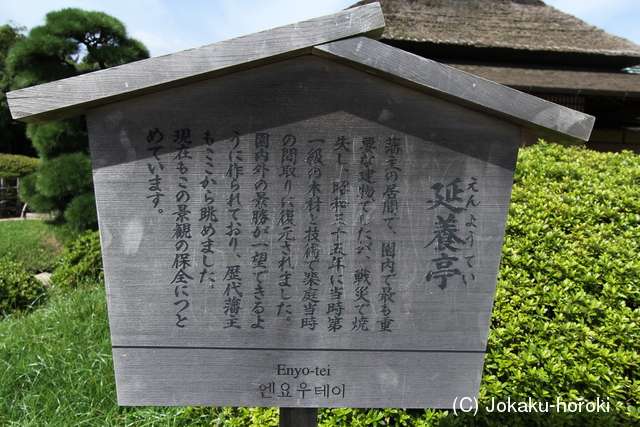 延養亭
えんようてい
藩主の居間で、園内で最も重
要な建物でしたが、戦災で焼
失し、昭和三十五年に当時第
一級の木材と技術で築庭当時
の間取りに復元されました。
園内外の景勝が一望できるよ
うに作られており、歴代藩主
もここから眺めました。
現在もこの景観の保全につと
めています。
Enyo-tei
엔요우테이
(C) Jokaku-horoki